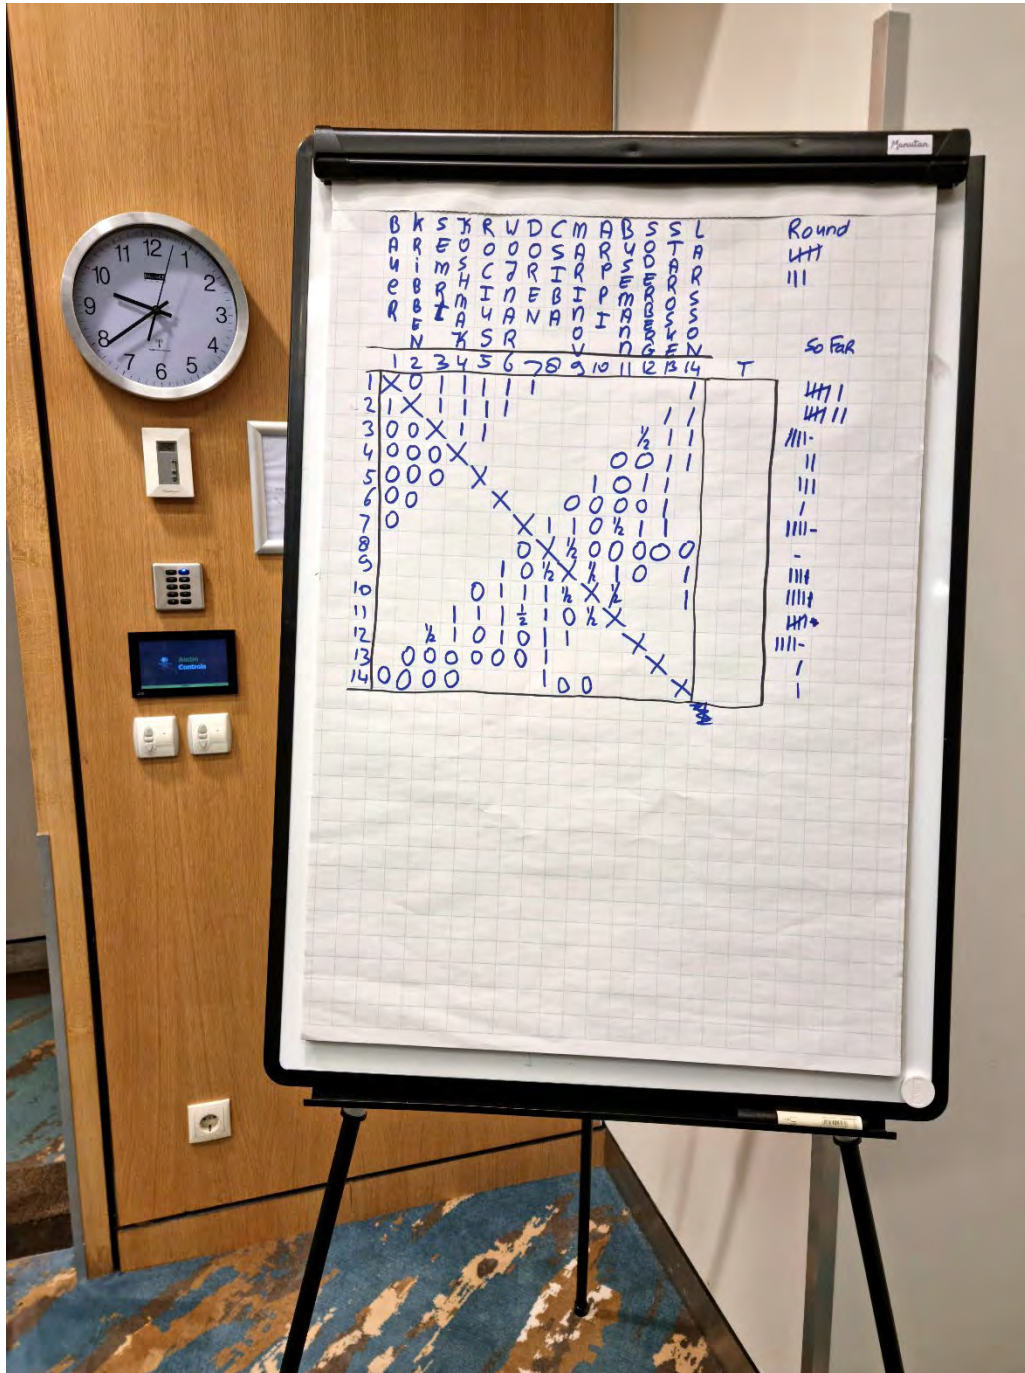 Manutan
BAUeR
KRiBBEN
SEMRI
KOSHMAK
ROCIUS
WOJnAR
DOREN
MARInOV
ARPPI
BUSEMAnn
SODERBERG
LARSSON
Round
卌 |||
So FaR
1 2 3 4 5 6 7 8 9 10 11 12 13 14 T
1 X 0 1 1 1 1 1 1 卌 |
2 1 X 1 1 1 1 1 1 卌 ||
3 0 0 X 1 1 ½ 1 1 ||||-
4 0 0 0 X 0 0 1 1 ||
5 0 0 0 X 1 0 1 1 |||
6 0 0 X 0 0 0 0 1 |
7 0 X 1 1 0 ½ 1 1 ||||-
8 0 X ½ 0 0 0 0 0 -
9 1 0 ½ X ½ 1 0 1
10 0 1 1 1 ½ X ½ 1
11 1 1 1 ½ 1 0 ½ X
12 ½ 1 0 1 0 1 1 X ||||-
13 0 0 0 0 0 0 1 X |
14 0 0 0 0 1 0 0 X |
12 1 2 3 4 5 6 7 8 9 10 11
Controls